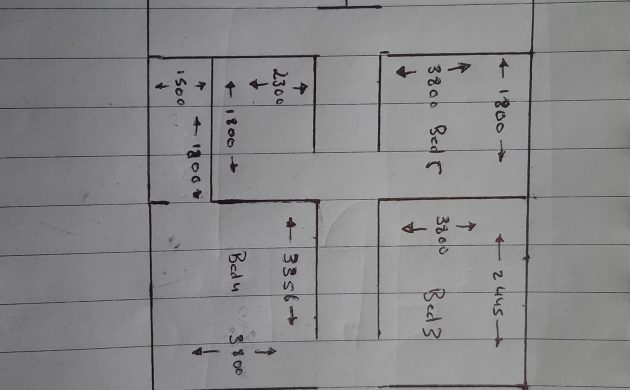 1800
3800 Bed 5
2300
1800
1500
1800
2445
3800
Bed 3
3356
Bed 4
3800